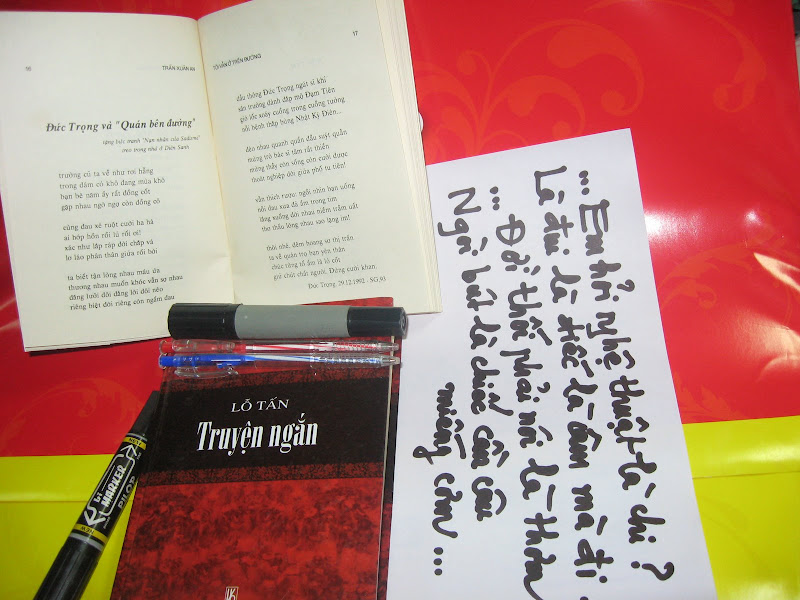 16 TRẦN XUÂN AN
Đức Trọng và "Quán bên đường"
tặng bức tranh "Nạn nhân của
treo trong nhà ở Diên Sanh
trường cũ ta về như rơi hẫng
trong đám cỏ khô đang mùa khô
bạn bè năm ấy rất đồng cốt
gặp nhau ngỡ ngụ còn đồng cô
cùng đau xé ruột cười ha hả
ai hớp hồn rồi lũ rối ơi!
xác như lắp ráp đời chắp vá
lơ láo phân thân giữa rối bời
ta biết tận lòng nhau máu đa
thương nhau muốn khóc vẫn sợ nhau
đắng lưỡi dối dăng lời dối nẻo
riêng biệt đời riêng còn ngấm đau
TÔI VẪN Ở TRÊN ĐƯỜNG 17
dầu thông Đức Trọng ngút sĩ khí
sân trường đành đắp mộ Đạm Tiên
gió lốc xoáy cuồng trong cuống tưởng
nỗi bệnh thắp bùng Nhật Ký Điên...
đèo nhau quanh quẩn đầu suýt quấn
mừng trò bác sĩ tâm rất thiền
mừng thầy còn sống còn cười được
thoát nghiệp đời giữa phố tu tiên!
vẫn thích rượu: ngồi nhìn bạn uống
nỗi đau xưa đã ẩm trong tim
lặng xuống đời nhau niềm trầm uất
thơ thấu lòng nhau sao lặng im!
thôi nhé, đêm hoang sơ thị trấn
ta về quán trọ bạn yên thân
chúc từng tổ ấm là lô cốt
giữ chút chất người. Đừng cười khan.
Đức Trọng, 29.12.1992 - SG.93
LỖ TẤN
Truyện ngắn
MARKER
PILOT
... Em hỏi nghệ thuật là chi ?
Là đui là điếc là câm mà đi ...
... Đời thối phải nói là thơm
Ngòi bút là chiếc cần câu
miếng cơm ...